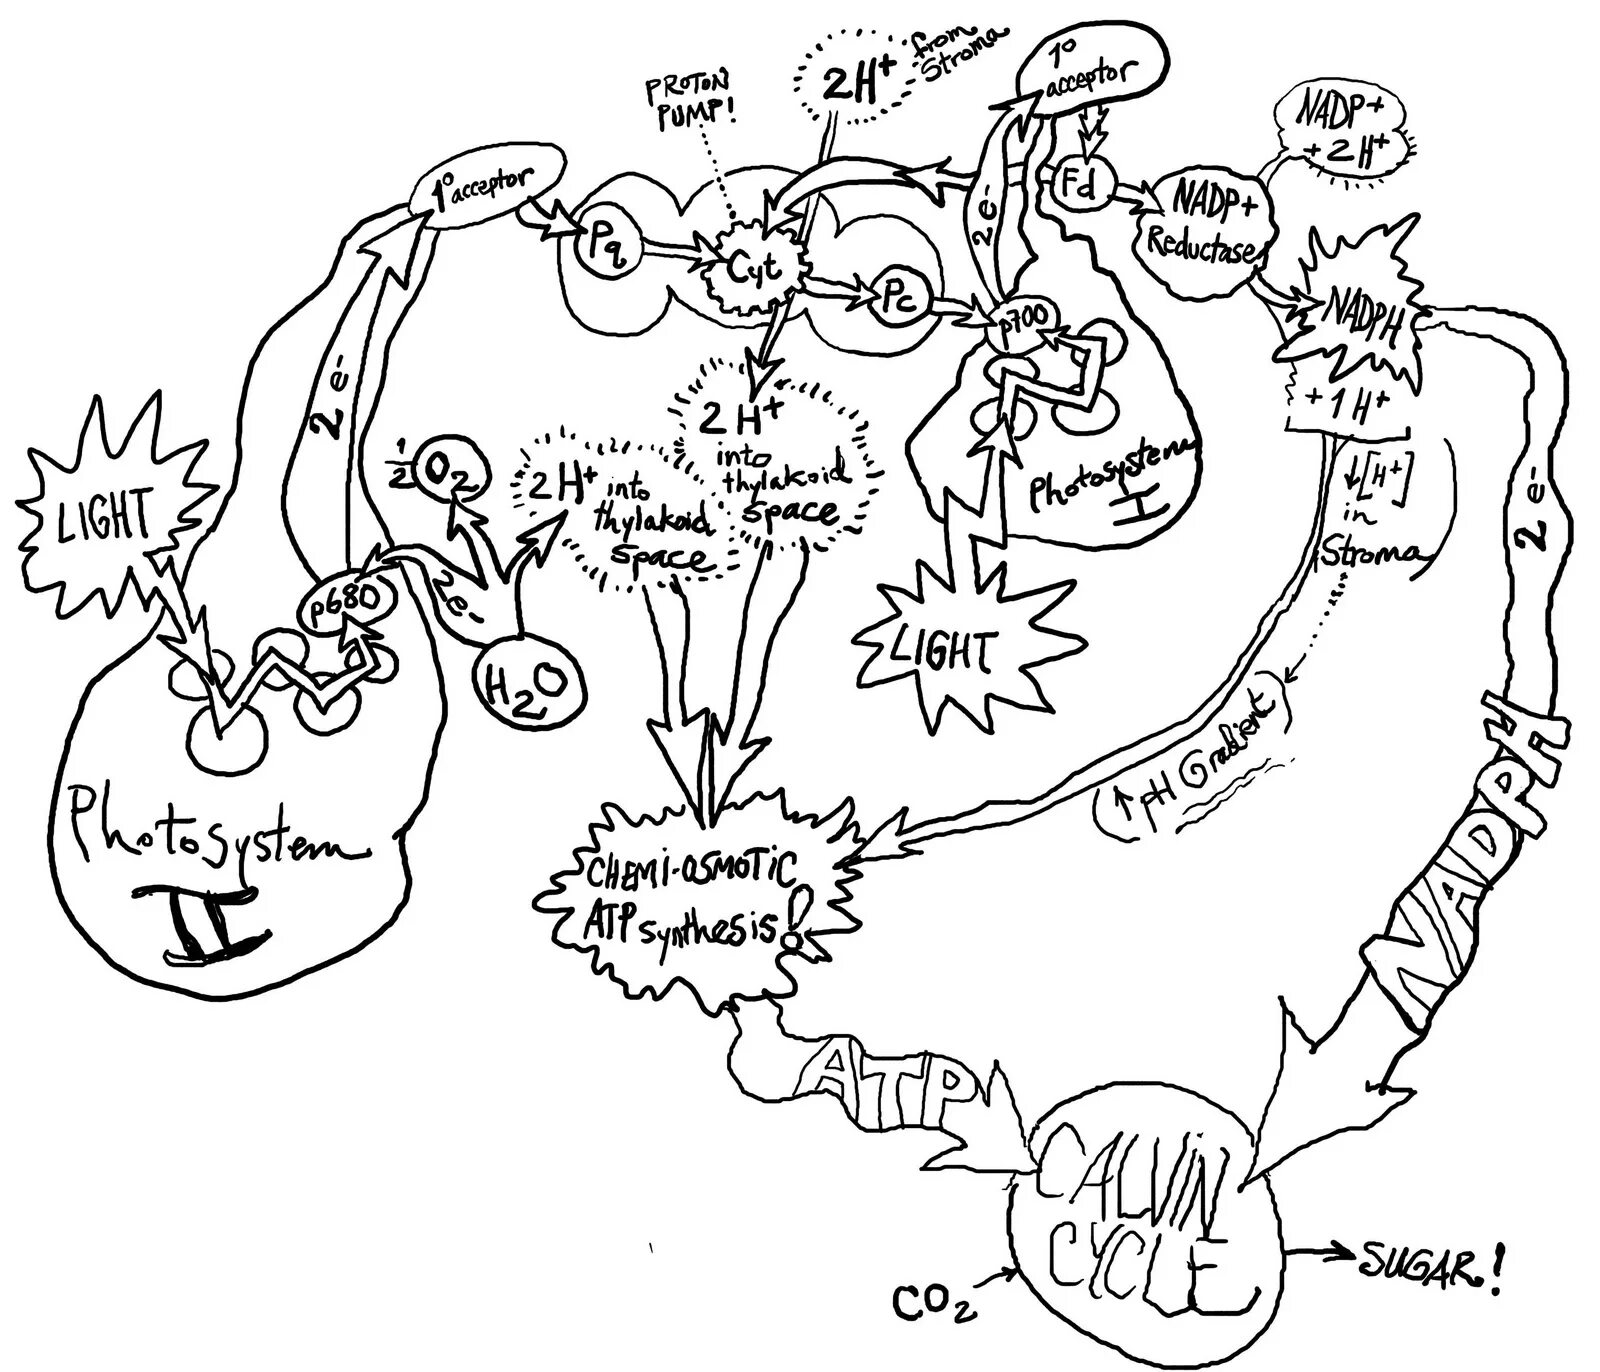 PROTON
PUMP!
2H+
from
Stroma
1º
acceptor
NADP+
+ 2H+
1º acceptor
Pq
Cyt
Pc
Fd
NADP+
Reductase
NADPH
+ 1H+
2e-
2e-
p700
LIGHT
1/2 O2
2H+ into
thylakoid
space
2H+
into
thylakoid
space
Photosystem
I
↓[H+]
in
Stroma
2e-
p680
2e-
H2O
LIGHT
Photosystem
II
(↑pH Gradient)
CHEMI-OSMOTIC
ATP synthesis!
NADPH
ATP
CALVIN
CYCLE
CO2
SUGAR!